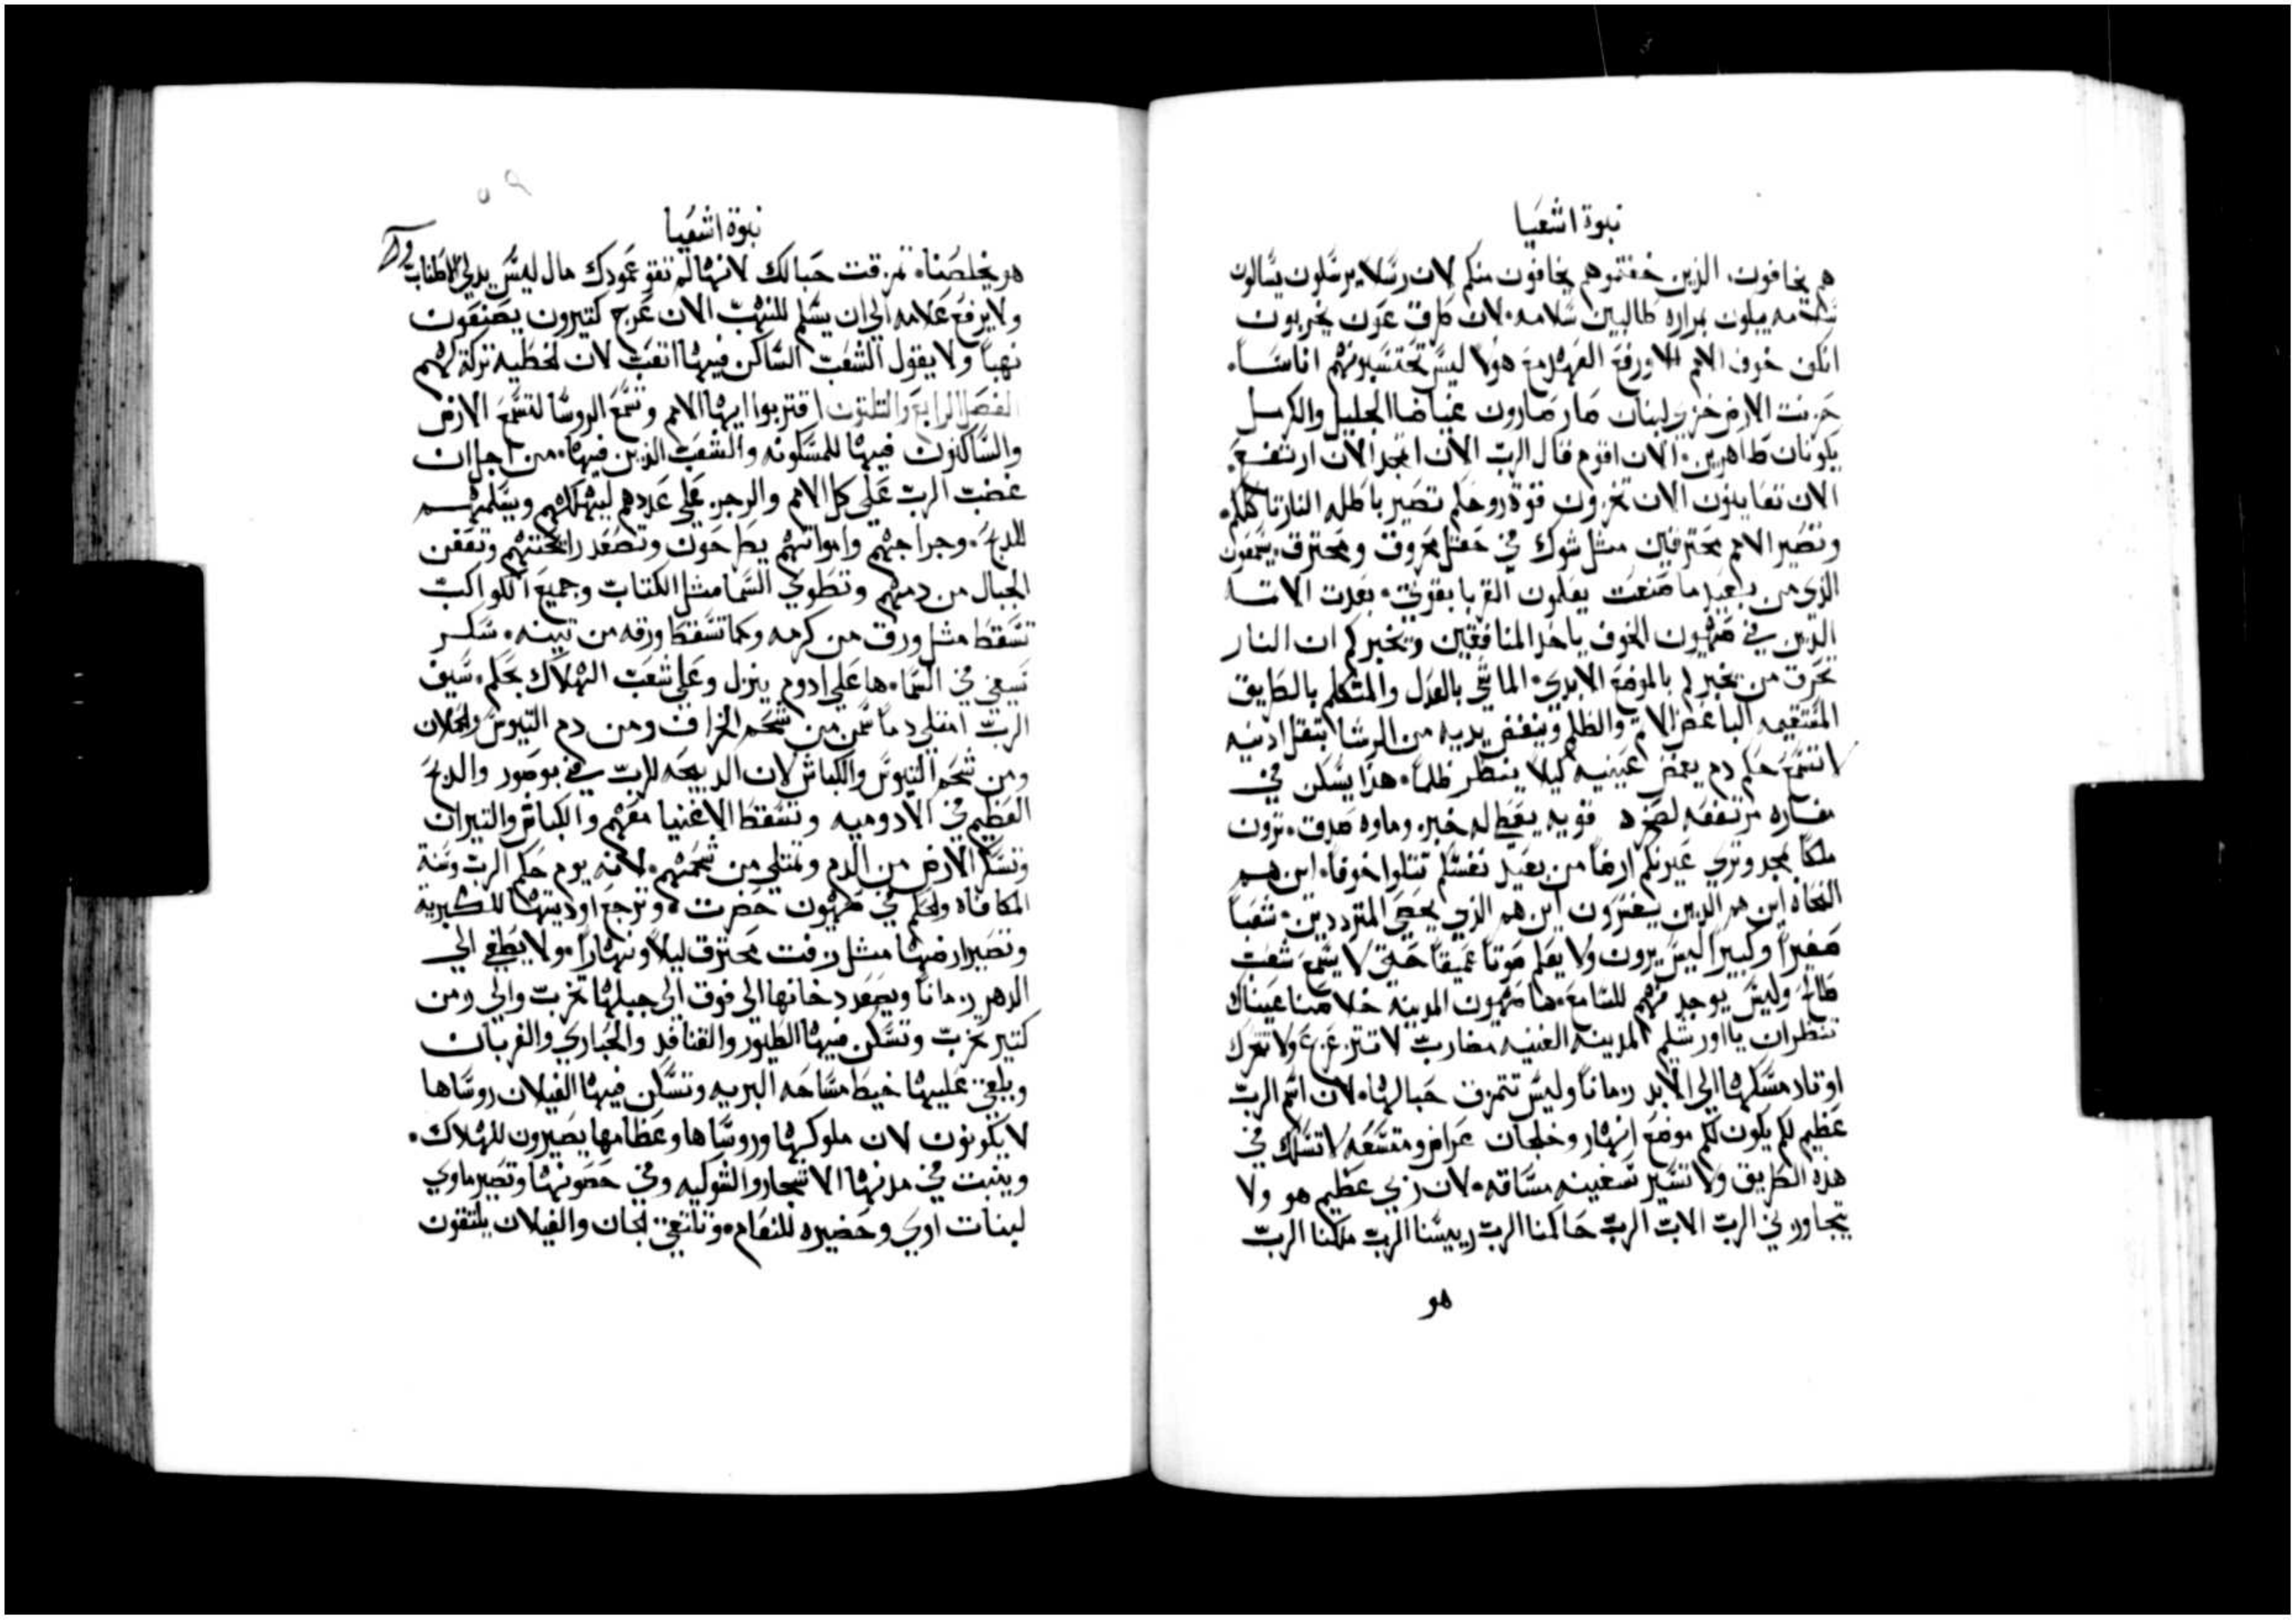 نبوة اشعيا
هم يخافون. الذين خفتموهم يخافون منكم لان رسلا يرسلون يسالون
سلامه يبلون بمراره طالبين سلامه. لان طرق عون يخربون
انكن خوف الامم الا ورفع العهد مع هولا ليس تحتسبونهم اناسا.
حزنت الارض خزي لبنان صار صارون غياضا الجليل والكرمل
يكونان ظاهرين. الان اقوم قال الرب الان اتمجد الان ارتفع.
الان تعاينون الان تخزون قوة روحكم تصير باطله النار تاكلكم.
وتصير الامم محترقين مثل شوك في حقل محروق ومحترق. يسمعون
الذي من بعيد ما صنعت يعلمون القربا بقوتي. بعدت الاثمة
الذين في صهيون الخوف ياخذ المنافقين ويخبركم ان النار
تحرق من يخبركم بالموضع الابدي. الماشي بالعدل والمتكلم بالطريق
المستقيمه الباغض الاثم والظلم وينفض يديه من الرشا يثقل ادنيه
لا تسمع حكم دم يغمض عينيه كيلا ينظر ظلما. هذا يسكن في
مغاره مرتفعه لصخره قويه يعطى له خبز. وماوه صدق. ترون
ملكا بمجد وترى عيونكم ارضا من بعيد نفسكم تتلوا خوفا. اين هم
النحاه اين هم الذين يشيرون اين هم الذي يحصي المترددين. شعبا
صغيرا وكبيرا اليس يرون ولا يعلم صوتا عميقا حتى لا يسمع شعب
طالح وليس يوجد فهم للسامع. ها صهيون المدينه خلاصنا عيناك
تنظران يا اورشليم المدينه الغنيه مضارب لا تتزعزع ولا تتحرك
اوتاد مسكنها الى الابد زمانا وليس تتمزق حبالها. لان اسم الرب
عظيم لكم يكون لكم موضع انهار وخلجان عراض ومتسعه لا تسلك في
هذه الطريق ولا تسير سفينه مساقه. لان ربي عظيم هو ولا
يتجاوزني الرب الاب الرب حاكمنا الرب رييسنا الرب ملكنا الرب
هو
نبوة اشعيا
هو يخلصنا. تمزقت حبالك لانها لم تقو عمودك مال ليس يدلي الاطناب
ولا يرفع علامه الى ان يسلم للنهب الان عرج كتيرون يصنعون
نهبا ولا يقول الشعب الساكن فيها اتعب لان الخطيه تركت لهم
الفصل الرابع والتلتون اقتربوا ايها الامم وتسمع الروسا لتسمع الارض
والساكنون فيها المسكونه والشعب الذين فيها. من اجل ان
غضب الرب على كل الامم والرجز على عددهم ليهلكهم ويسلمهم
للدبح. وجراحهم وامواتهم يطرحون وتصعد رايحتهم وتعفن
الجبال من دمهم وتطوى السما مثل الكتاب وجميع الكواكب
تسقط مثل ورق من كرمه وكما تسقط ورقه من تينه. سكر
سيفي في السما. ها على ادوم ينزل وعلى شعب الهلاك بحكم. سيف
الرب امتلى دما سمن من شحم الخراف ومن دم التيوس والحملان
ومن شحم التيوس والكباش لان الدبيحه للرب في بوصور والدبح
العظيم في الادوميه وتسقط الاغنيا معهم والكباش والتيران
وتسكر الارض من الدم وتمتلي من شحمهم. لانه يوم حكم الرب وسنة
المكافاه والحكم في صهيون حضرت. وترجع اوديتها للكبريته
وتصير ارضها مثل زفت محترق ليلا ونهارا. ولا يطفى الى
الدهر زمانا ويصعد دخانها الى فوق الى جبلها تخرب والى زمن
كتير تخرب وتسكن فيها الطيور والقنافد والحباري والغربان
ويلقى عليها خيط مساحه البريه وتسكن فيها الغيلان روساها
لا يكونون لان ملوكها وروساها وعظامها يصيرون للهلاك.
وينبت في مدنها الاشجار والشوكيه وفي حصونها وتصير ماوى
لبنات اوي وحضيره للنعام. وتلتقي الجان والغيلان يلتقون